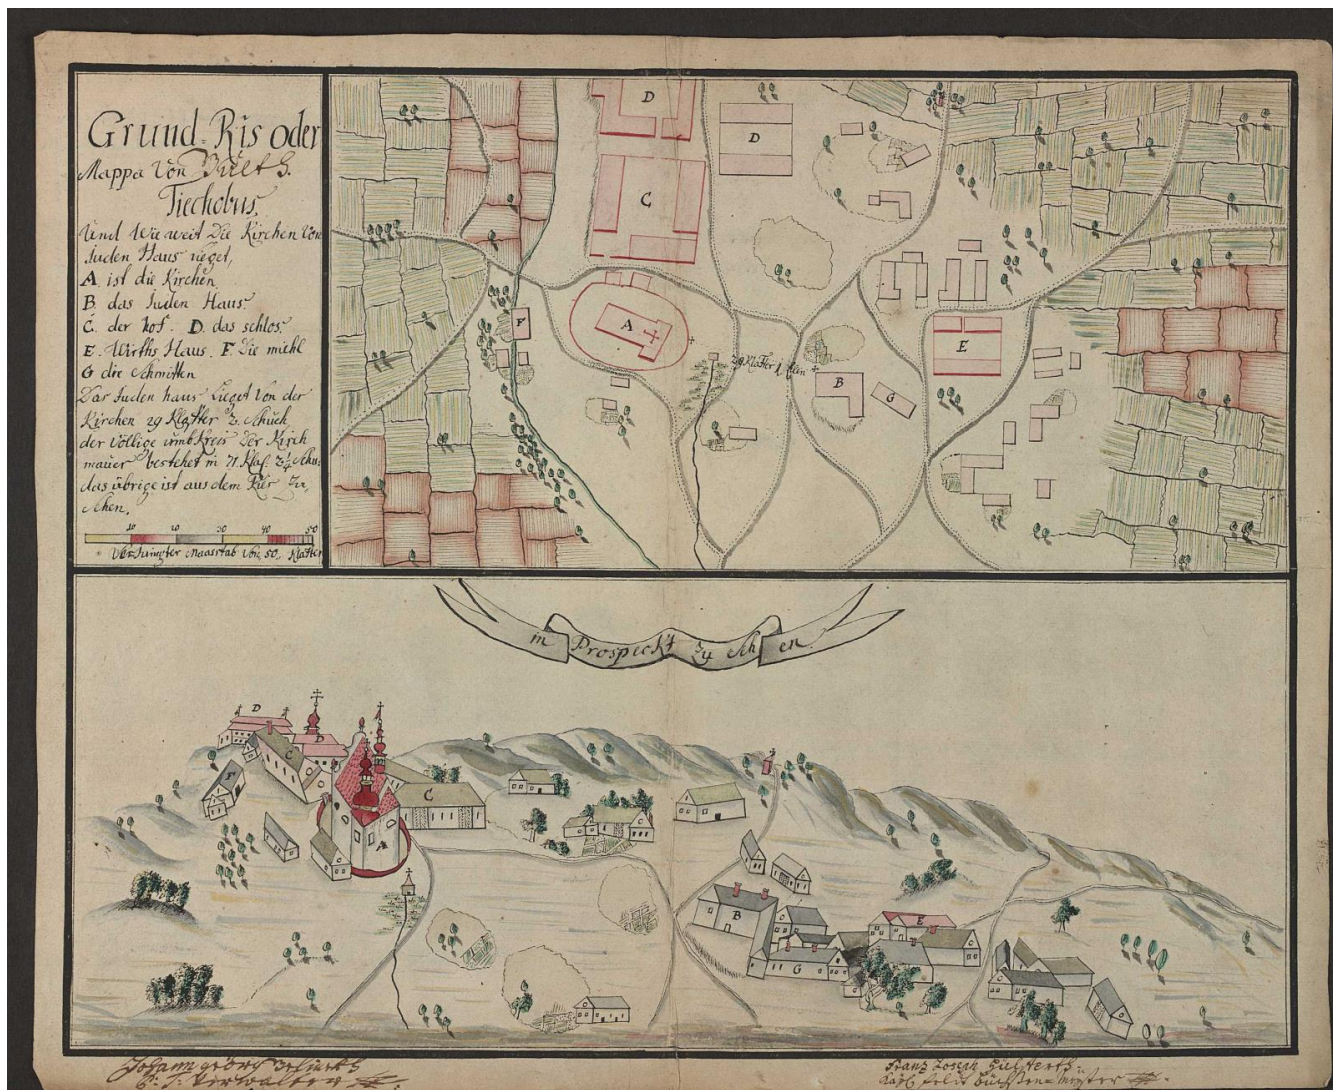 Grund=Ris oder
Mappa von Guelt S.
Tiechobus,
Und Wie weit Die Kirchen Von
Juden Haus lieget,
A ist die Kirchen
B. das Juden Haus.
C. der hof. D. das schlos.
E. Wirths Haus. F. die miehl
G die Schmitten
Das Juden haus lieget Von der
Kirchen 29 Klaffter 2. Schuch
der Völlige umbKreis der Kirch
mauer bestehet in 71. Klaf. 3¼ Schu:
das übrige ist aus dem Ries Zu,
sehen.
10 20 30 40 50
Ver Jüngter Maasstab Von 50. Klafter
D
D
C
A
F
29 Klaffter
B
G
E
in Prospeckt Zu Sehen.
D
D
C
F
C
A
B
G
E
Johann Georg
Verwalter
Franz Joseph
Karl